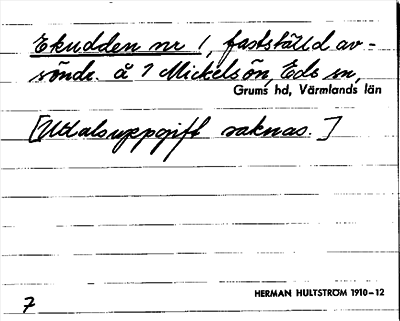 Ekudden nr 1, fastställd av-
söndr. å 7 Mickelsön, Eds sn,
Grums hd, Värmlands län
[Uttalsuppgift saknas.]
HERMAN HULTSTRÖM 1910–12
7